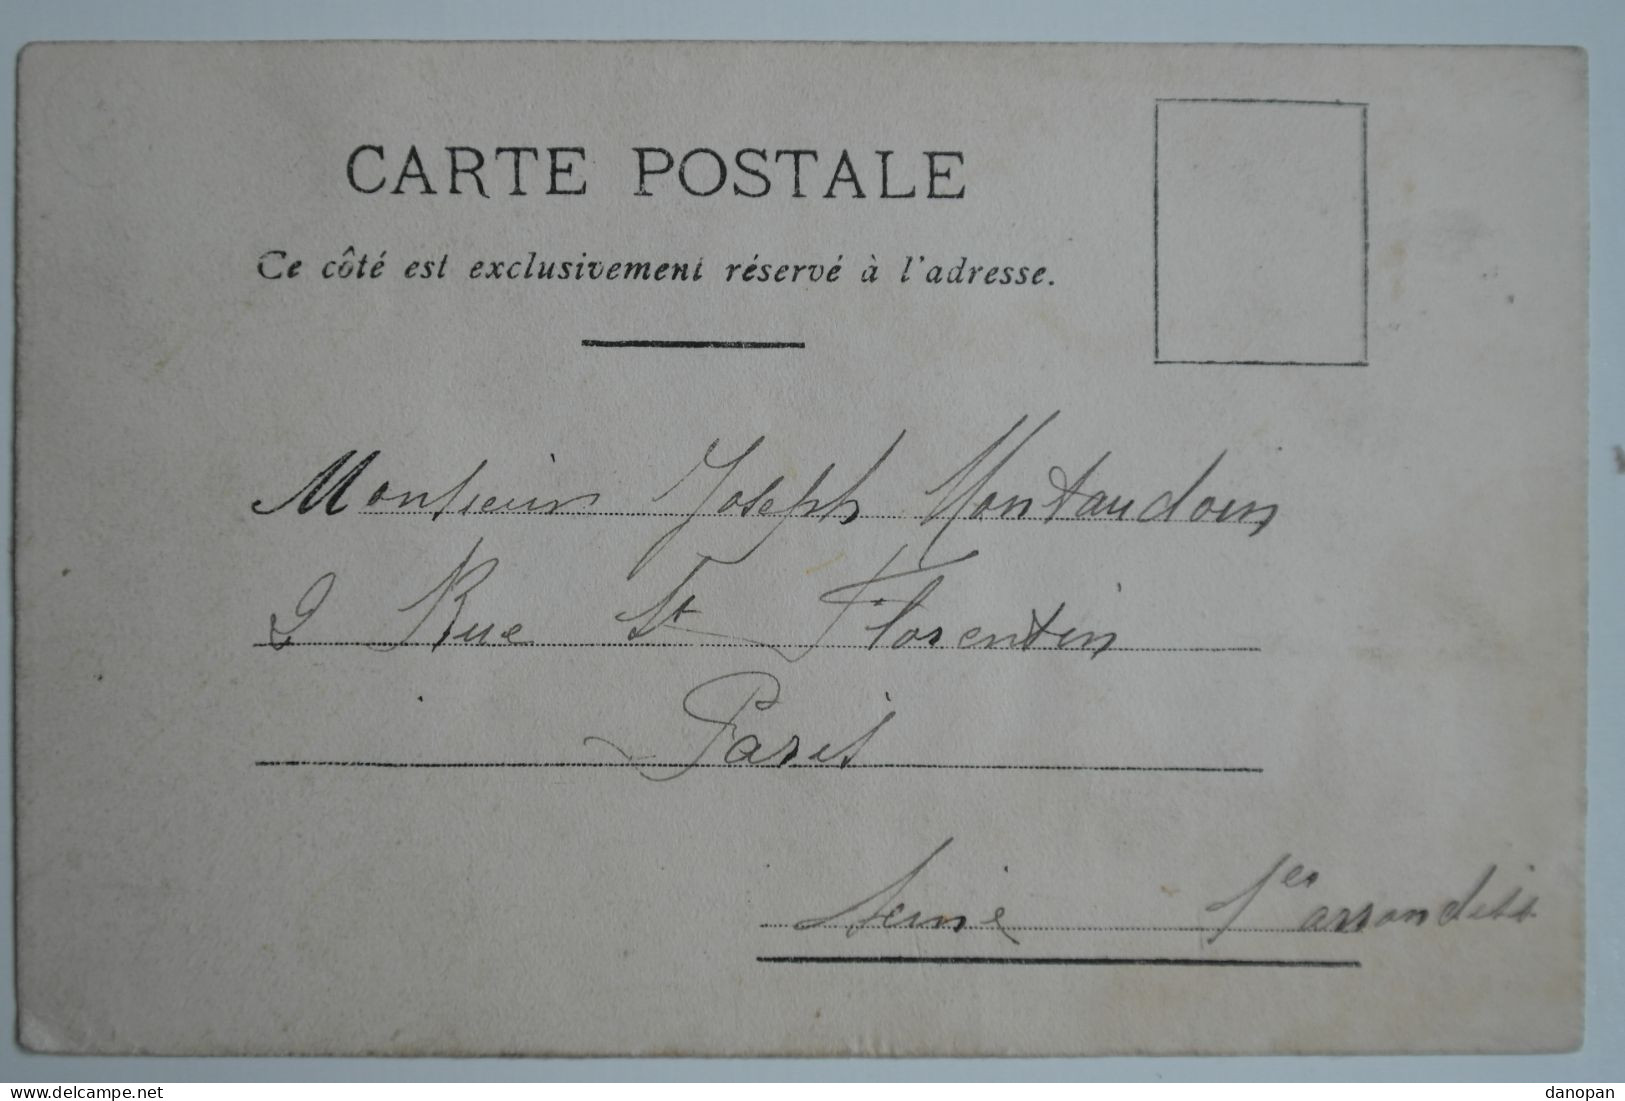 CARTE POSTALE
Ce côté est exclusivement réservé à l'adresse.
Monsieur Joseph Montaudoin
2 Rue St Florentin
Paris
Seine 1er arrondist
delcampe.net
danopan